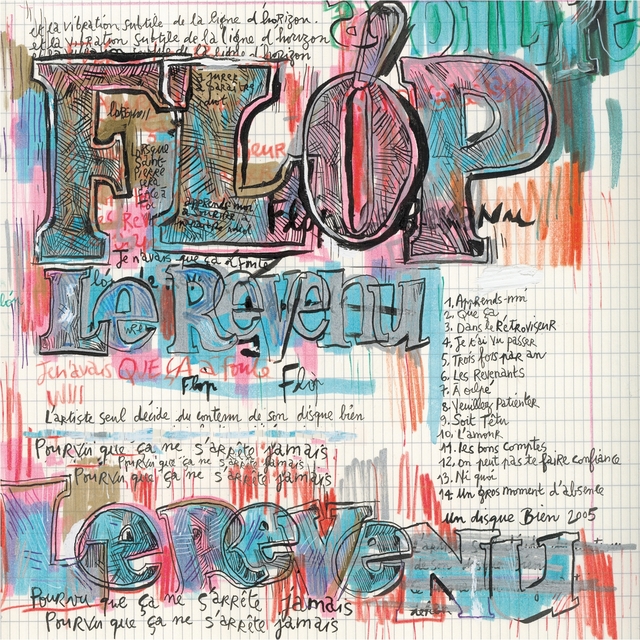 et la vibration subtile de la ligne d'horizon.
et la vibration subtile de la ligne d'horizon
et la vibration subtile de la ligne d'horizon
FLÓP
Lorsque
Saint-
Pierre
apprends-moi
à sourire
Flop
Je n'avais que ça à foutre
Le Revenu
Je n'avais QUE ÇA à foutre
Flop Flop
L'artiste seul décide du contenu de son disque bien
Pourvu que ça ne s'arrête jamais
Pourvu que ça ne s'arrête jamais
Pourvu que ça ne s'arrête jamais
1. Apprends-moi
2. Que ça
3. Dans le RÉTROVISEUR
4. Je t'ai vu passer
5. Trois fois par an
6. Les Revenants
7. À oilpé
8. Veuillez patienter
9. Soit Têtu
10. L'amour
11. Les bons comptes
12. On peut pas te faire confiance
13. Ni quoi
14 Un gros moment d'absence
Un disque Bien 2005
Le Revenu
Pourvu que ça ne s'arrête jamais
Pourvu que ça ne s'arrête jamais